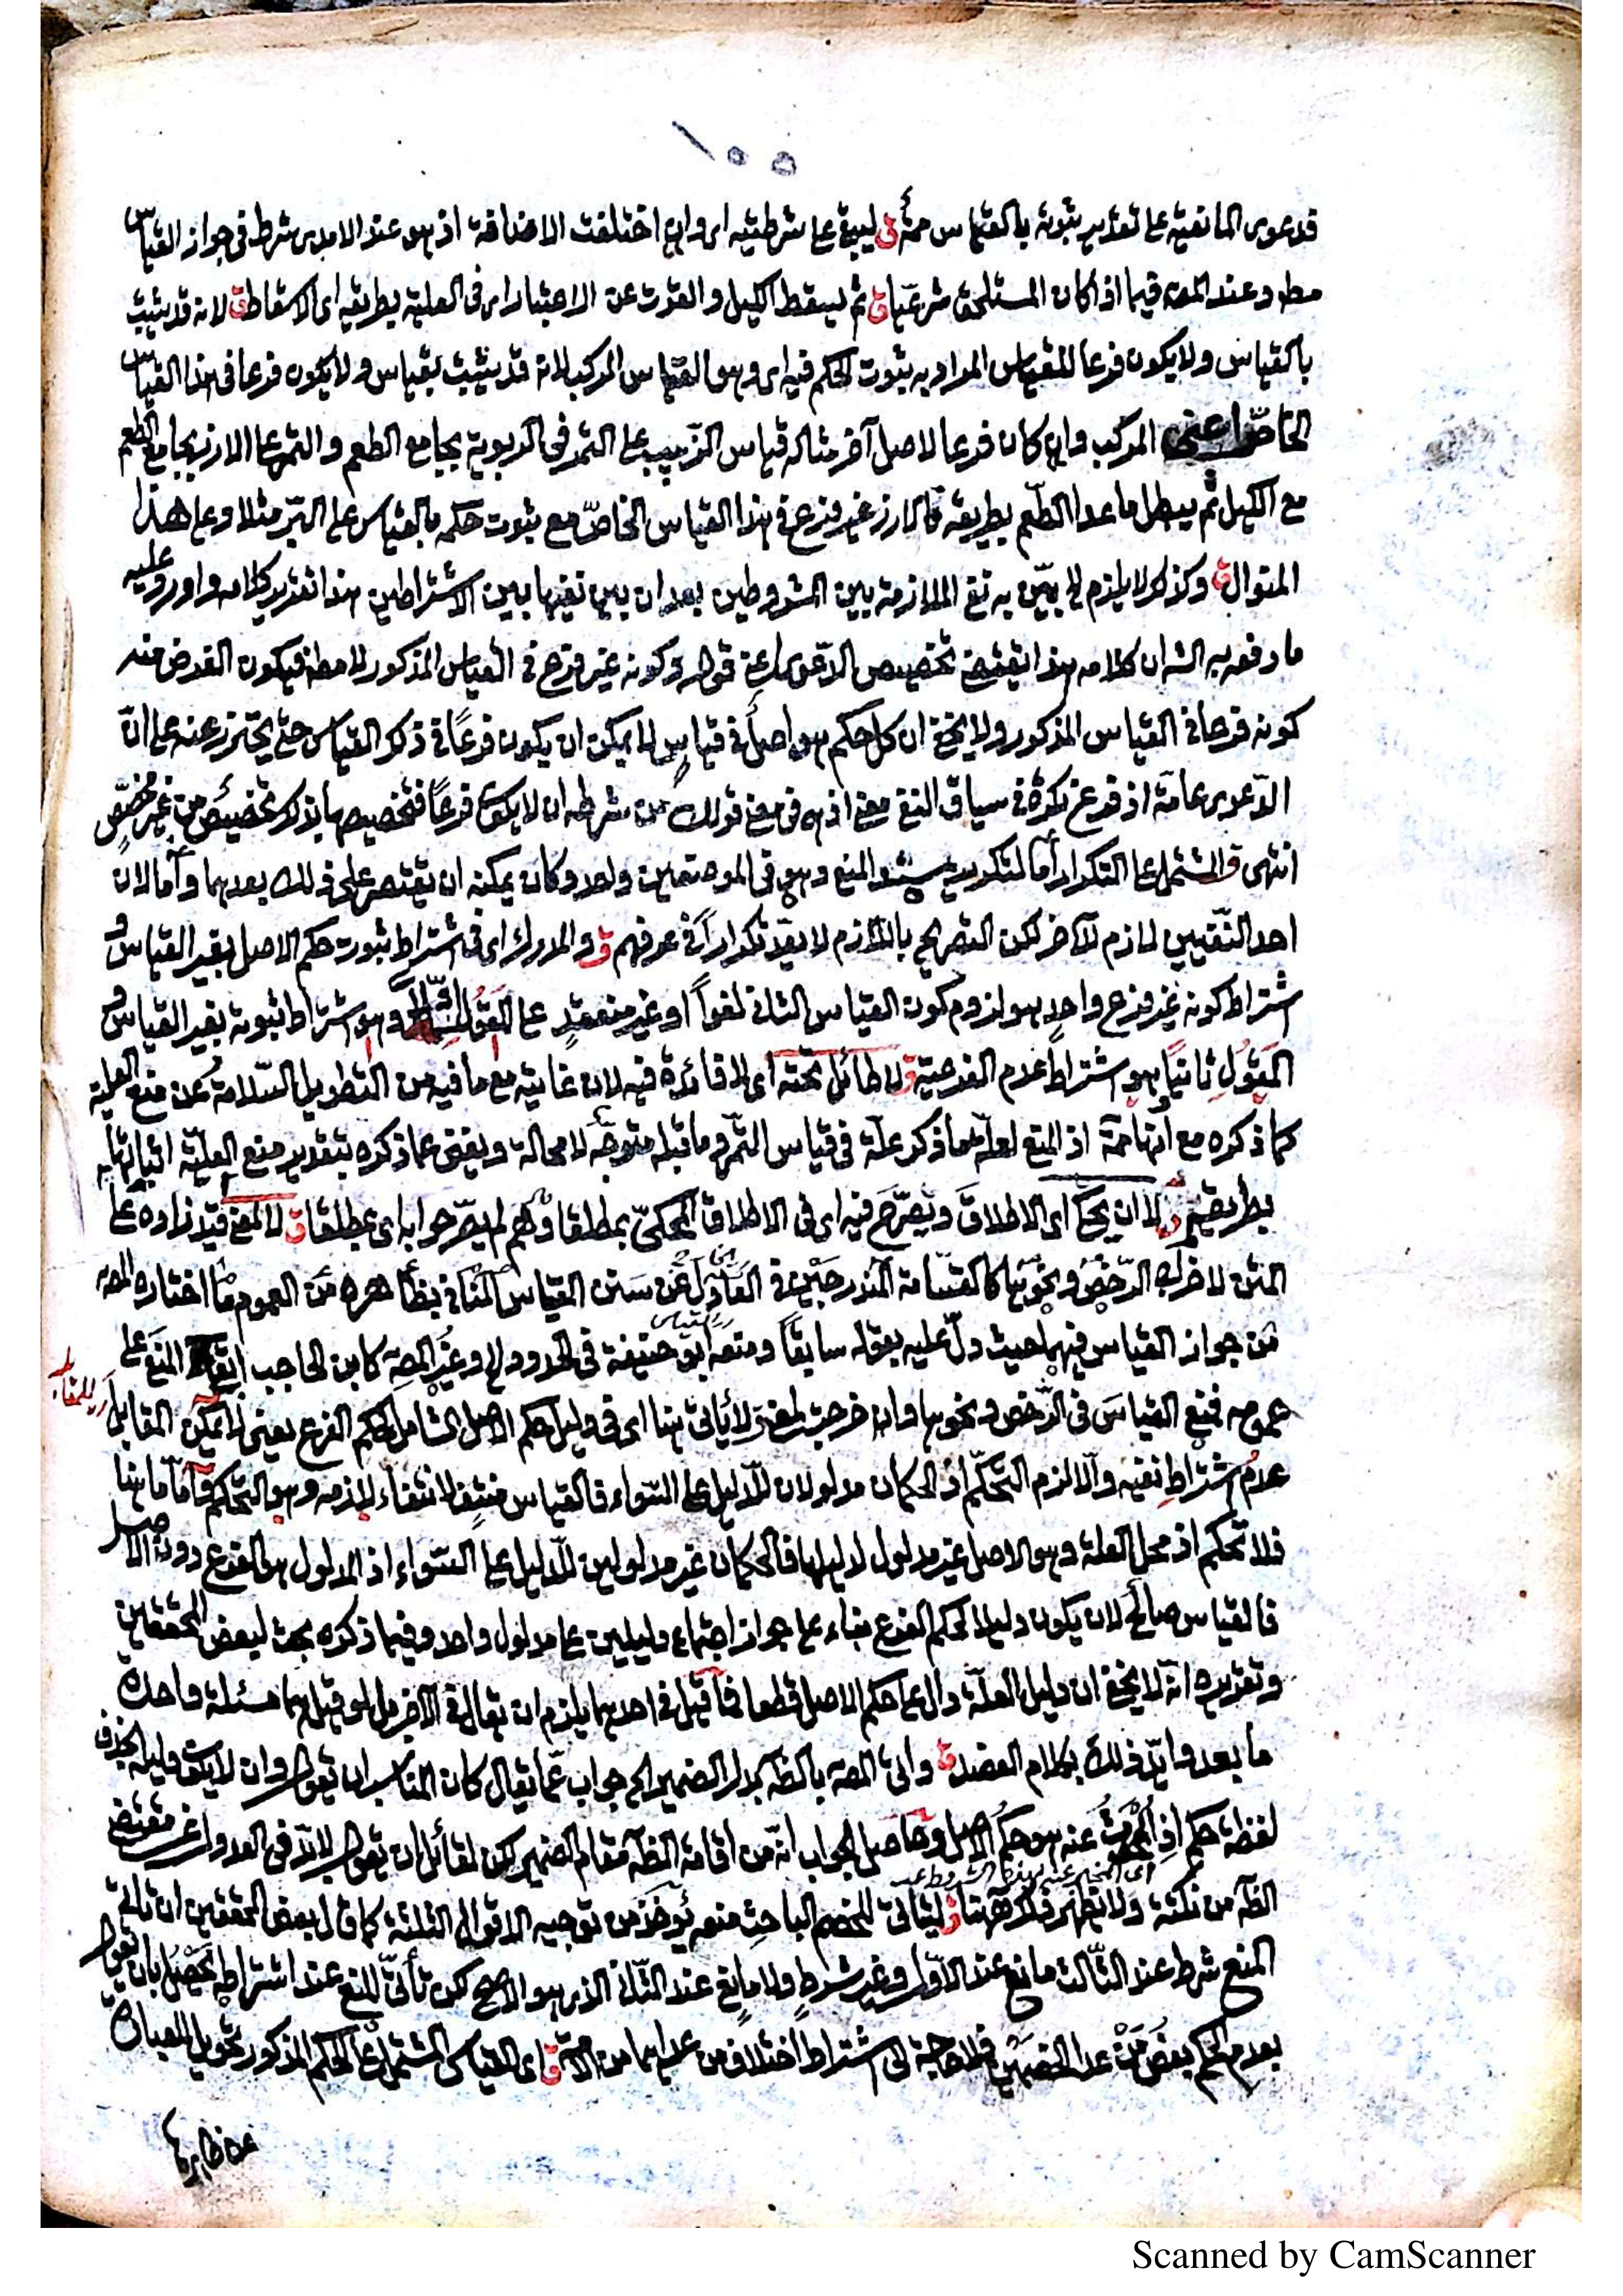 ١٥٥
فدعوى المانعية على تقدير ثبوته بالقياس ق ليبقى على شرطيته اى وان اختلفت الاضافة اذ هو عند الامدى شرط فى جواز القياس
مط وعند المصه فيما اذا كان المستلحق شرعيا ق ثم يسقط الكيل والقوت عن الاعتبار اى فى العلية بطريقه اى الاسقاط ق لانه قد يثبت
بالقياس ولا يكون فرعا للقياس المراد به ثبوت الحكم فيه اى وهو القياس المركب لانه قد يثبت بقياس ولا يكون فرعا فى هذا القياس
الخاص اعنى المركب وان كان فرعا لاصل آخر مثاله قياس الزبيب على التمر فى الربوية بجامع الطعم والتمر على الارز بجامع الطعم
مع الكيل ثم يبطل ما عدا الطعم بطريقه فالارز غير فرع فى هذا القياس الخاص مع ثبوت حكمه بالقياس على البر مثلا وعلى هذا
المنوال ق وكذلك لا يلزم الخ بين به نفى الملازمة بين المشروطين بعد ان بين نفيها بين الاشتراطين هذا تقدير كلامه واورد عليه
ما دفعه به الش ان كلامه هذا يقتضى تخصيص الدعوى اعنى قوله وكونه غير فرع فى القياس المذكور لا مط فيكون الغرض منه
كونه فرعا فى القياس المذكور ولا يخفى ان كل حكم هو اصل فى قياس لا يمكن ان يكون فرعا فى ذلك القياس حتى يحترز عنه على ان
الدعوى عامة اذ فرع نكرة فى سياق النفى معنى اذ هو فى معنى قولك من شرطه ان لا يكون فرعا فتخصيصها بذلك تخصيص من غير مخصص
انتهى ق المشتمل على التكرار اما لتكريره سند المنع وهو فى الموضعين واحد وكان يمكنه ان يقتصر على ذلك بعدهما واما لان
احد النفيين لازم للآخر لكن التصريح باللازم لا يعد تكرارا فى عرفهم ق والمدرك اى فى اشتراط ثبوت حكم الاصل بغير القياس و
اشتراط كونه غير فرع واحد هو لزوم كون القياس الثانى لغوا او غير منعقد على المقول وهو اشتراط ثبوته بغير القياس و
المقول ثانيا هو اشتراط عدم الفرعية ق لا طائل تحته اى لا فائدة فيه لان غايته مع ما فيه من التطويل السلامة عن منع العلية
كما ذكره مع انها اذ المنع لعلية ما ذكر علة فى قياس التمر وما قبله متوجه لا محالة ويغنى عما ذكره بتقدير منع العلية اثباتها
بطريقه ق لا ان يحكى اى الاطلاق ويصرح فيه اى فى الاطلاق المحكى بمطلقا لم يصرحوا به اى بمطلقا ق لا لمعنى قيد زاده على
المتن لاخراج الرخص ونحوها كالقسامة المندرجين فى العادل عن سنن القياس المنافى بظاهره من العموم ما اختاره المصه
من جواز القياس فيهما حيث دل عليه بقوله سابقا ومنعه ابو حنيفة فى الحدود الخ وغير المصه كابن الحاجب ابقى المنع على
عمومه فمنع القياس فى الرخص ونحوها وان خرجت لمعنى ق لا يأتى هنا اى فى دليل حكم الاصل الشامل لحكم الفرع يعنى لا يمكن المقابل
اى للمقابل
عدم اشتراط نفيه والا لزم التحكم اذ الحكمان مدلولان للدليل على السواء فالقياس منتف لانتفاء لازمه وهو التحكم واما ما هنا
فلا تحكم اذ محل العلة وهو الاصل غير مدلول لدليلها فالحكمان غير مدلولين للدليل على السواء اذ المدلول هو الفرع دون الاصل
فالقياس صالح لان يكون دليلا لحكم الفرع بناء على جواز اجتماع دليلين على مدلول واحد وفيما ذكره بحث لبعض المحققين
وتقديره انه لا يخفى ان دليل العلة دال على حكم الاصل قطعا فما قيل فى احدهما يلزم ان يقال فى الآخر بل لو قيل هما مسئلة واحدة
ما بعد وايد ذلك بكلام العضد ق واتى المصه بالظه بدل الضمير الخ جواب عما يقال كان المناسب ان يقول وان لا يكون دليله بحذف
لفظة حكم اذ المحدث عنه هو حكم الاصل وحاصل الجواب انه من اقامة الظه مقام الضمير لكن لقائل ان يقول لابد فى العدول عن مقتضى
اى المخبر عنه بهذه الشروط
الظه من نكتة ولا تظهر فلا ههنا ق ليتأتى للخصم الباحث منعه يؤخذ من توجيه الاقوال الثلثة كما قال بعض المحققين ان تأتى
المنع شرط عند الثالث مانع عند الاول وغير شرط ولا مانع عند الثانى الذى هو الاصح لكن تأتى المنع عند اشتراطه يحصل بان يقول
بعدم الحكم بعض من عدا الخصمين فلا حاجة الى اشتراط اختلاف من عداهما من الامة ق اى القياس المشتمل على الحكم المذكور تحويل العبارة
عن ظاهرها